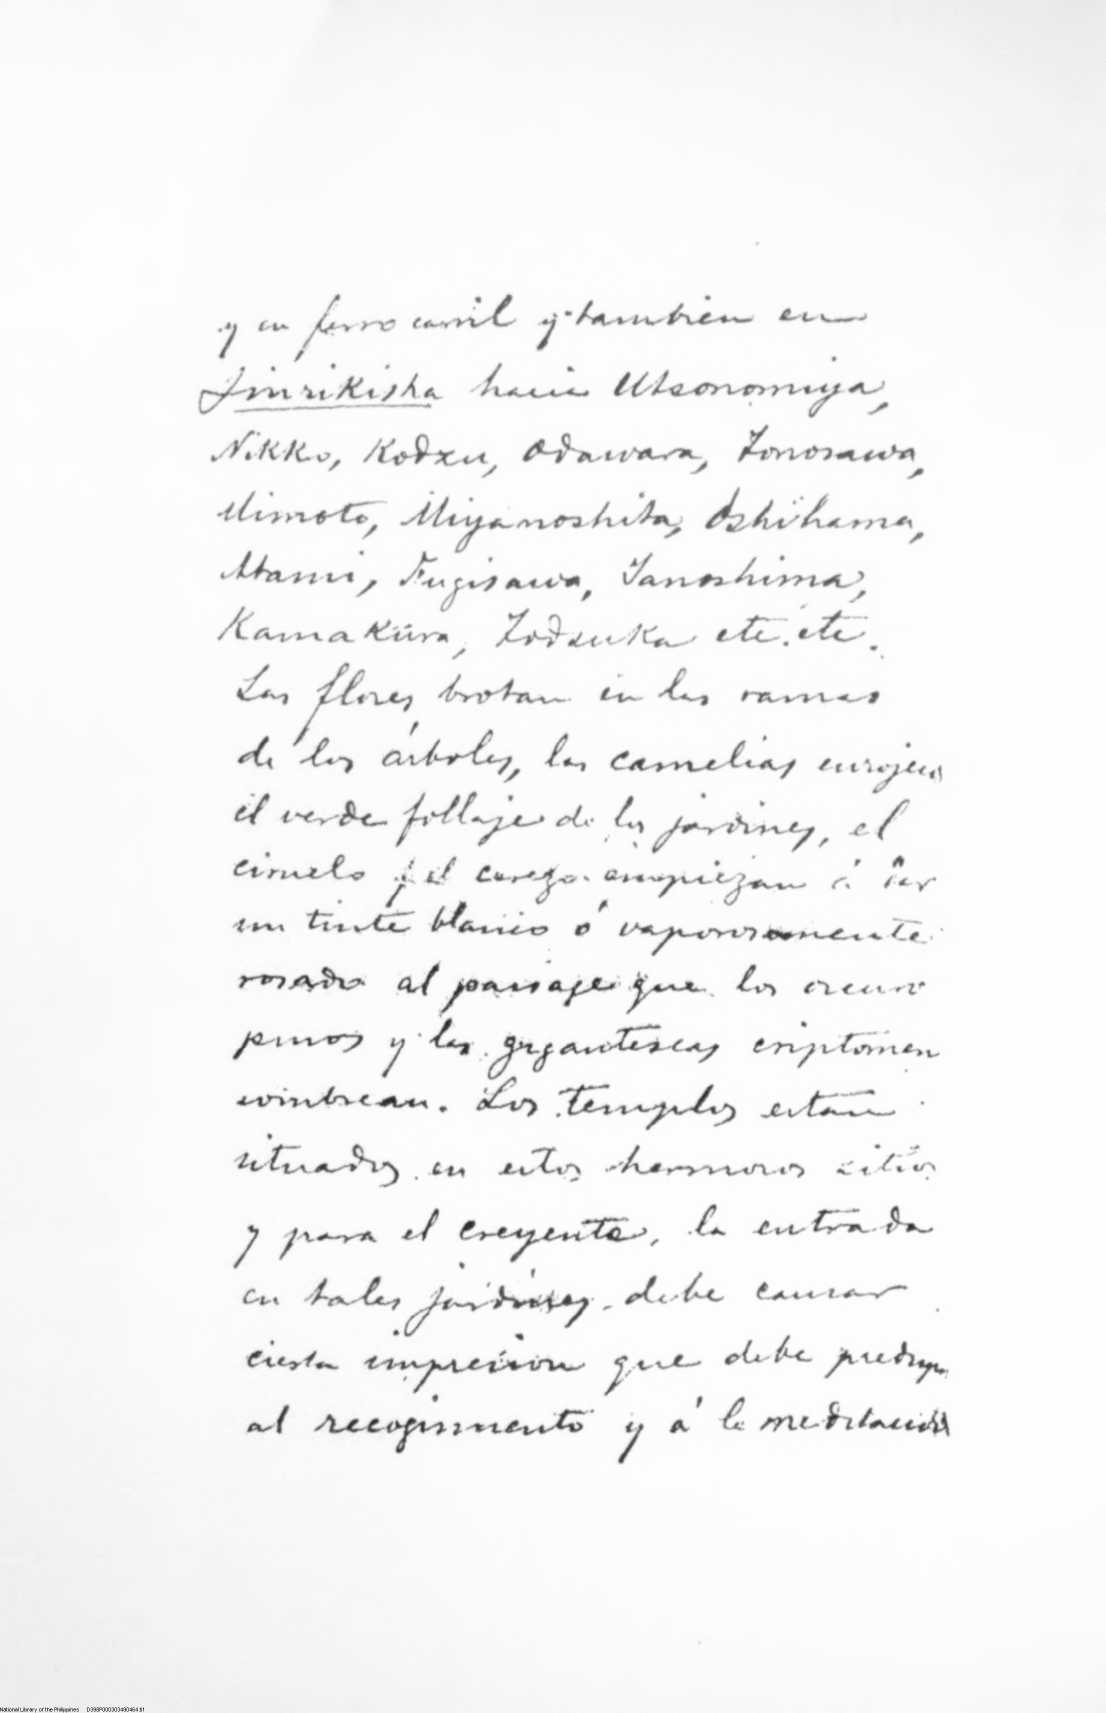 y en ferro carril y tambien en
Jinrikisha hacia Utsonomiya,
Nikko, Kodzu, Odawara, Tonosawa,
Mimoto, Miyanoshita, Oshihama,
Atami, Fugisawa, Tanoshima,
Kamakura, Todsuka etc. etc.
Las flores brotan en las ramas
de los árboles, las camelias enrojecen
el verde follaje de los jardines, el
ciruelo y el cerezo empiezan á dar
un tinte blanco ó vaporosamente
rosado al paisaje que los oscuro
pinos y las gigantescas criptomen
sombrean. Los templos estan
situados en estos hermosos sitios
y para el creyente, la entrada
en tales jardines debe causar
cierta impresion que debe predispo
al recogimiento y á la meditacion
National Library of the Philippines D398P000303490464.tif